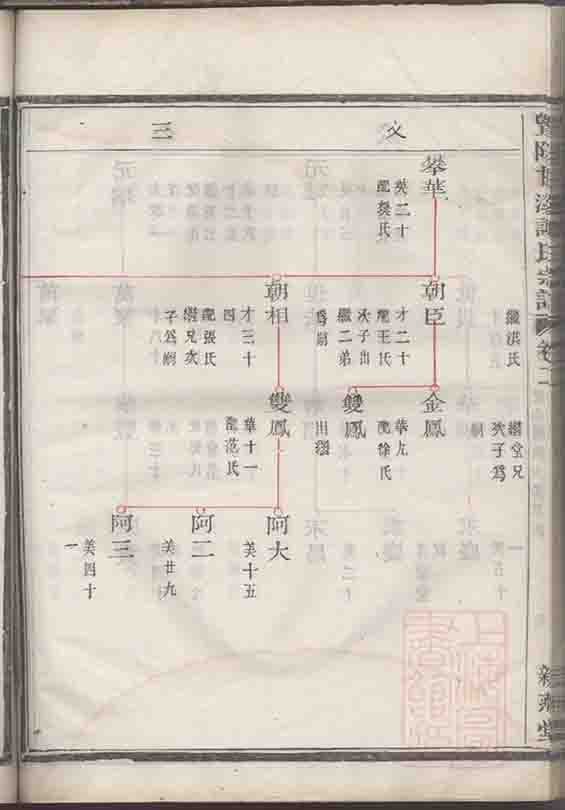 文
三
繼洪氏
繼堂兄
次子爲
嗣
攀華
英二十
配樊氏
朝臣
才二十
配王氏
次子出
繼二弟
爲嗣
朝相
才三十
四
配張氏
繼兄次
子爲嗣
金鳳
華九
配徐氏
雙鳳
出繼
雙鳳
華十一
配范氏
阿大
美十五
阿二
美廿九
阿三
美四十
一
卷二